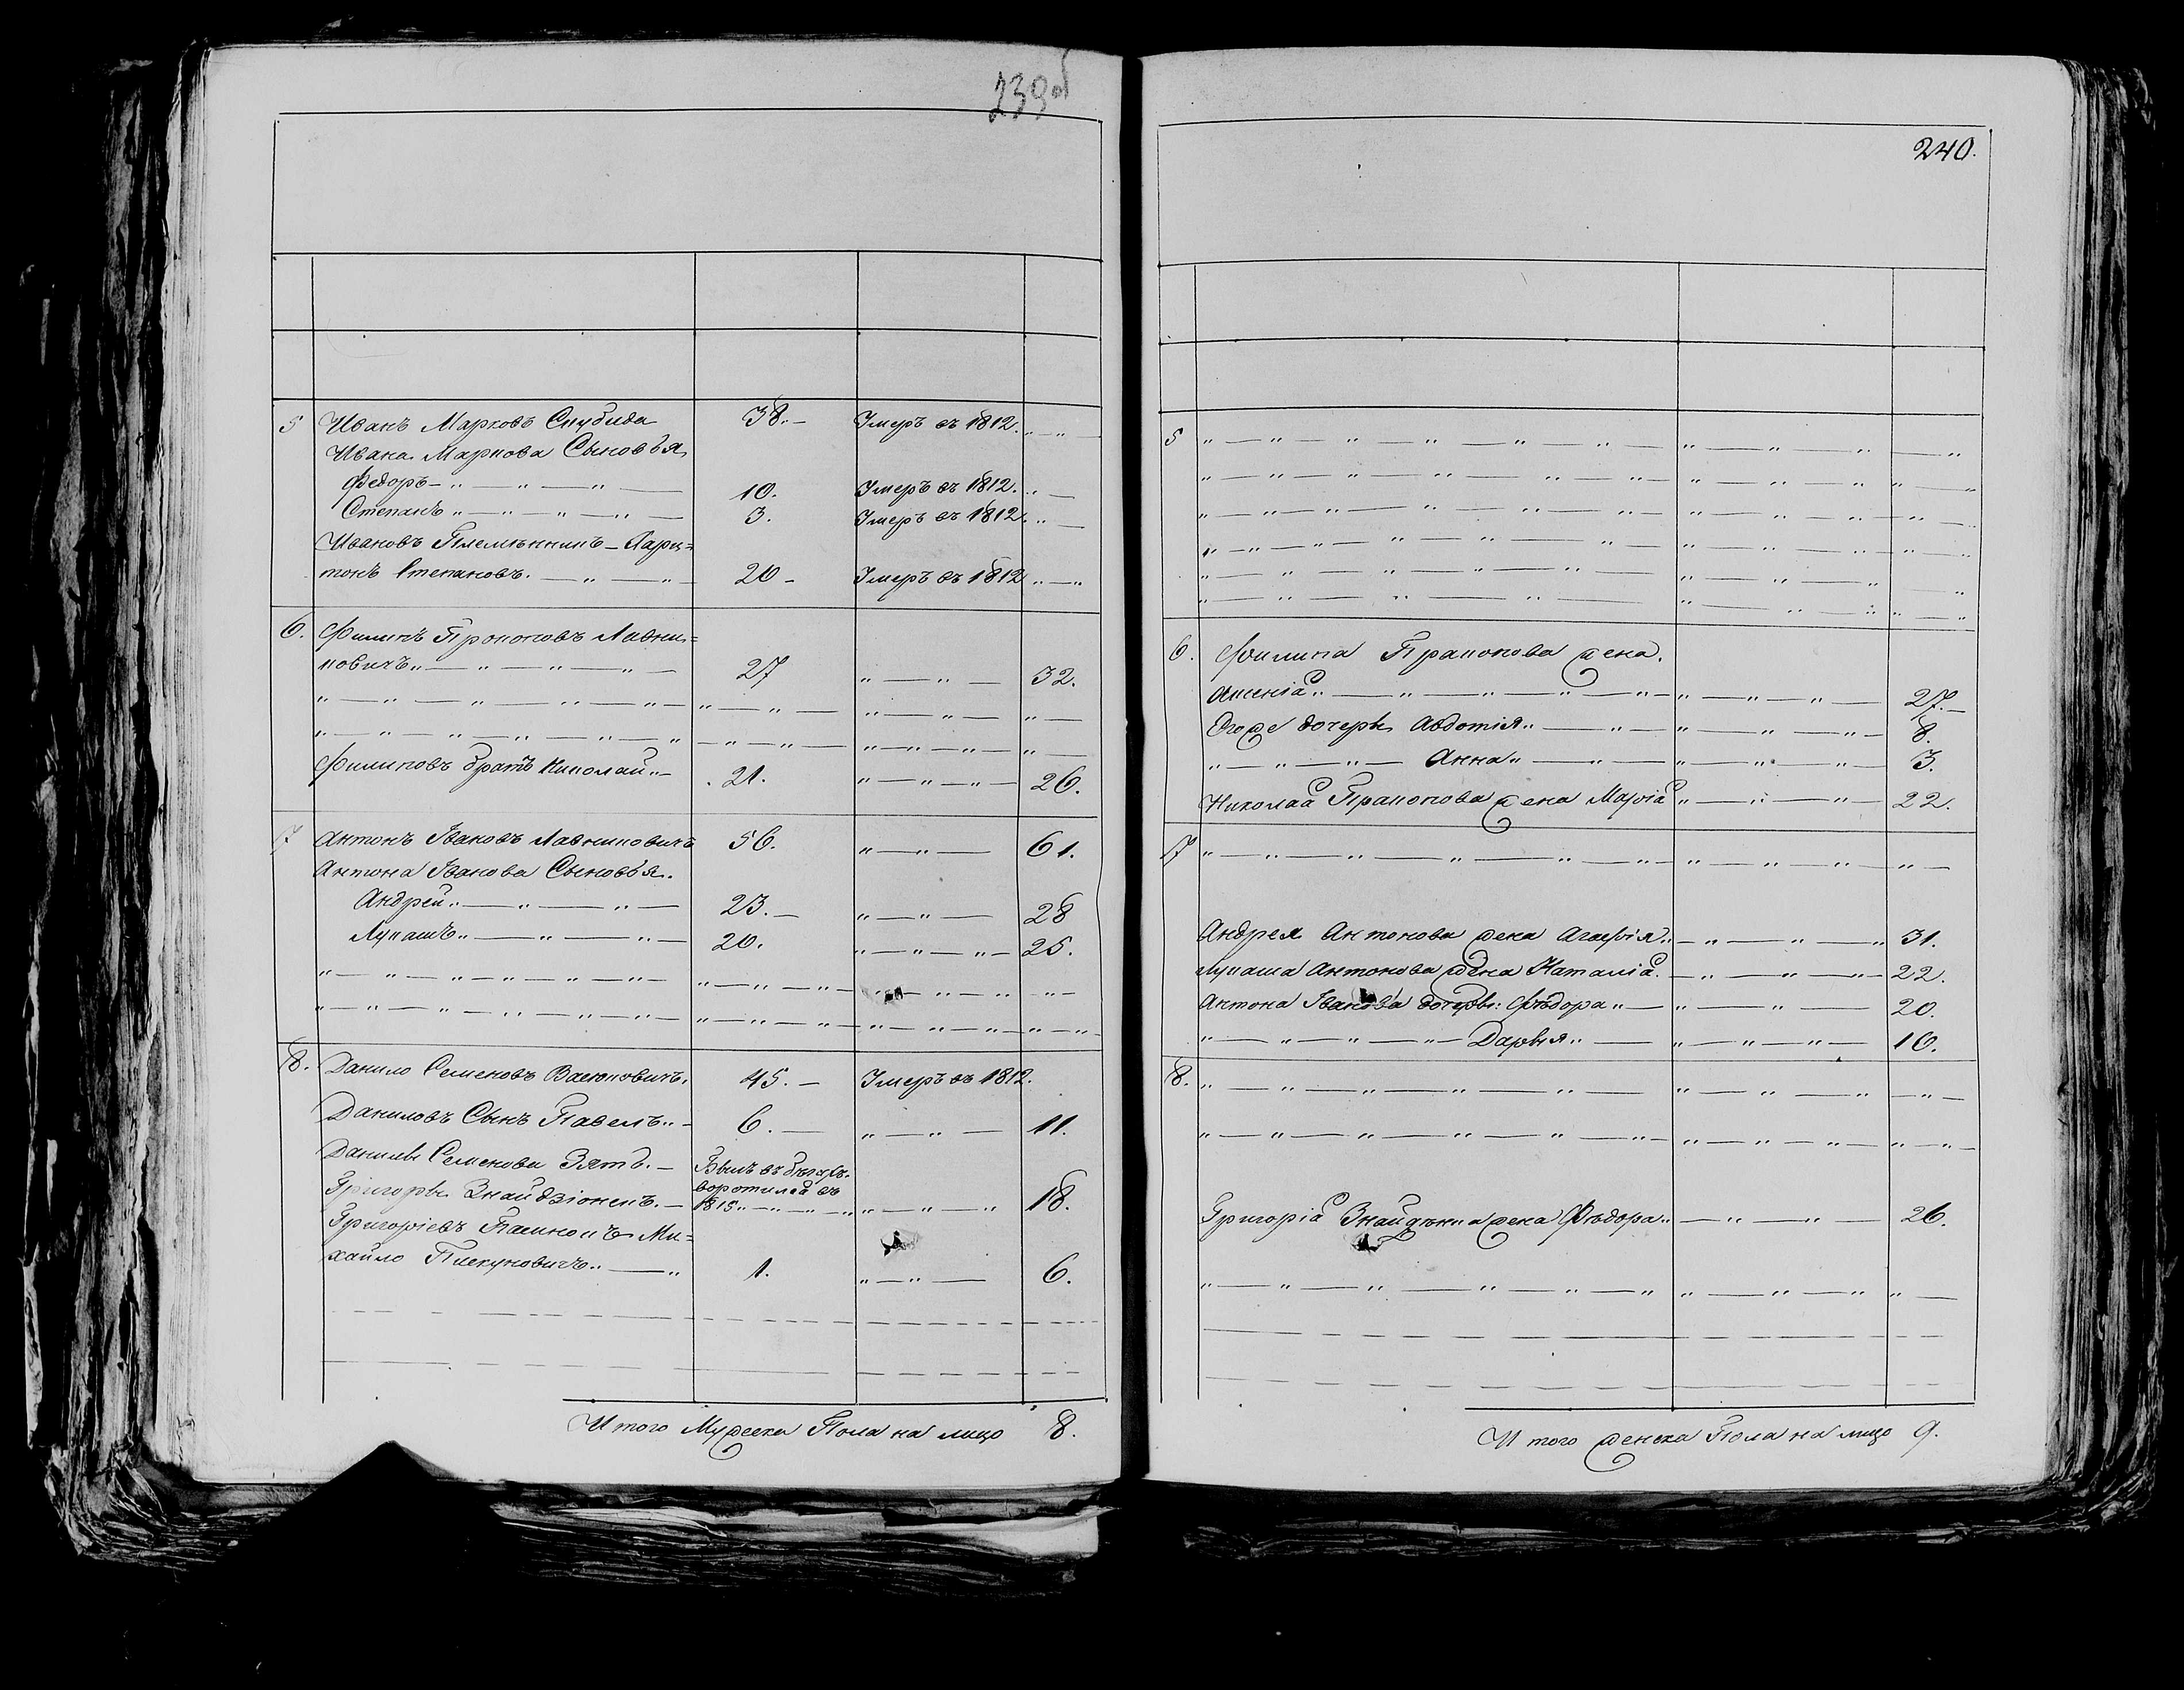 239об
5 Иванъ Марковъ Скубида 38. Умеръ въ 1812.
Ивана Маркова Сыновья
Федоръ 10. Умеръ въ 1812.
Степанъ 3. Умеръ въ 1812.
Ивановъ Племянникъ Лари=
тонъ Степановъ. 20 Умеръ въ 1812
6. Филипъ Прокоповъ Лавни=
ковичъ 27 32.
Филиповъ братъ Николай 21. 26.
7 Антонъ Івановъ Лавниковичъ 56. 61.
Антона Іванова Сыновья.
Андрей 23. 28
Лукашъ 20. 25.
8. Данило Семеновъ Васюковичъ. 45. Умеръ въ 1812.
Даниловъ Сынъ Павелъ 6. 11.
Данилы Семенова Зять. Былъ въ бегахъ
воротился въ
Григоры Знайдзіонекъ. 1815 18.
Григоріевъ Пасынокъ Ми=
хайло Пискуновичъ 1. 6.
Итого Мужеска Пола на лицо 8.
240.
5
6. Филипа Пракопова жена.
Аксенія 27.
Егоже дочеры Авдотія 8.
Анна 3.
Николая Пракопова жена Марія 22.
7
Андрея Антонова жена Агафія 31.
Лукаша Антонова жена Наталія. 22.
Антона Іванова дочеры: Фѣдора 20.
Дарья 16.
8.
Григорія Знайдзенка жена Фѣдора 26.
Итого женска Пола на лицо 9.